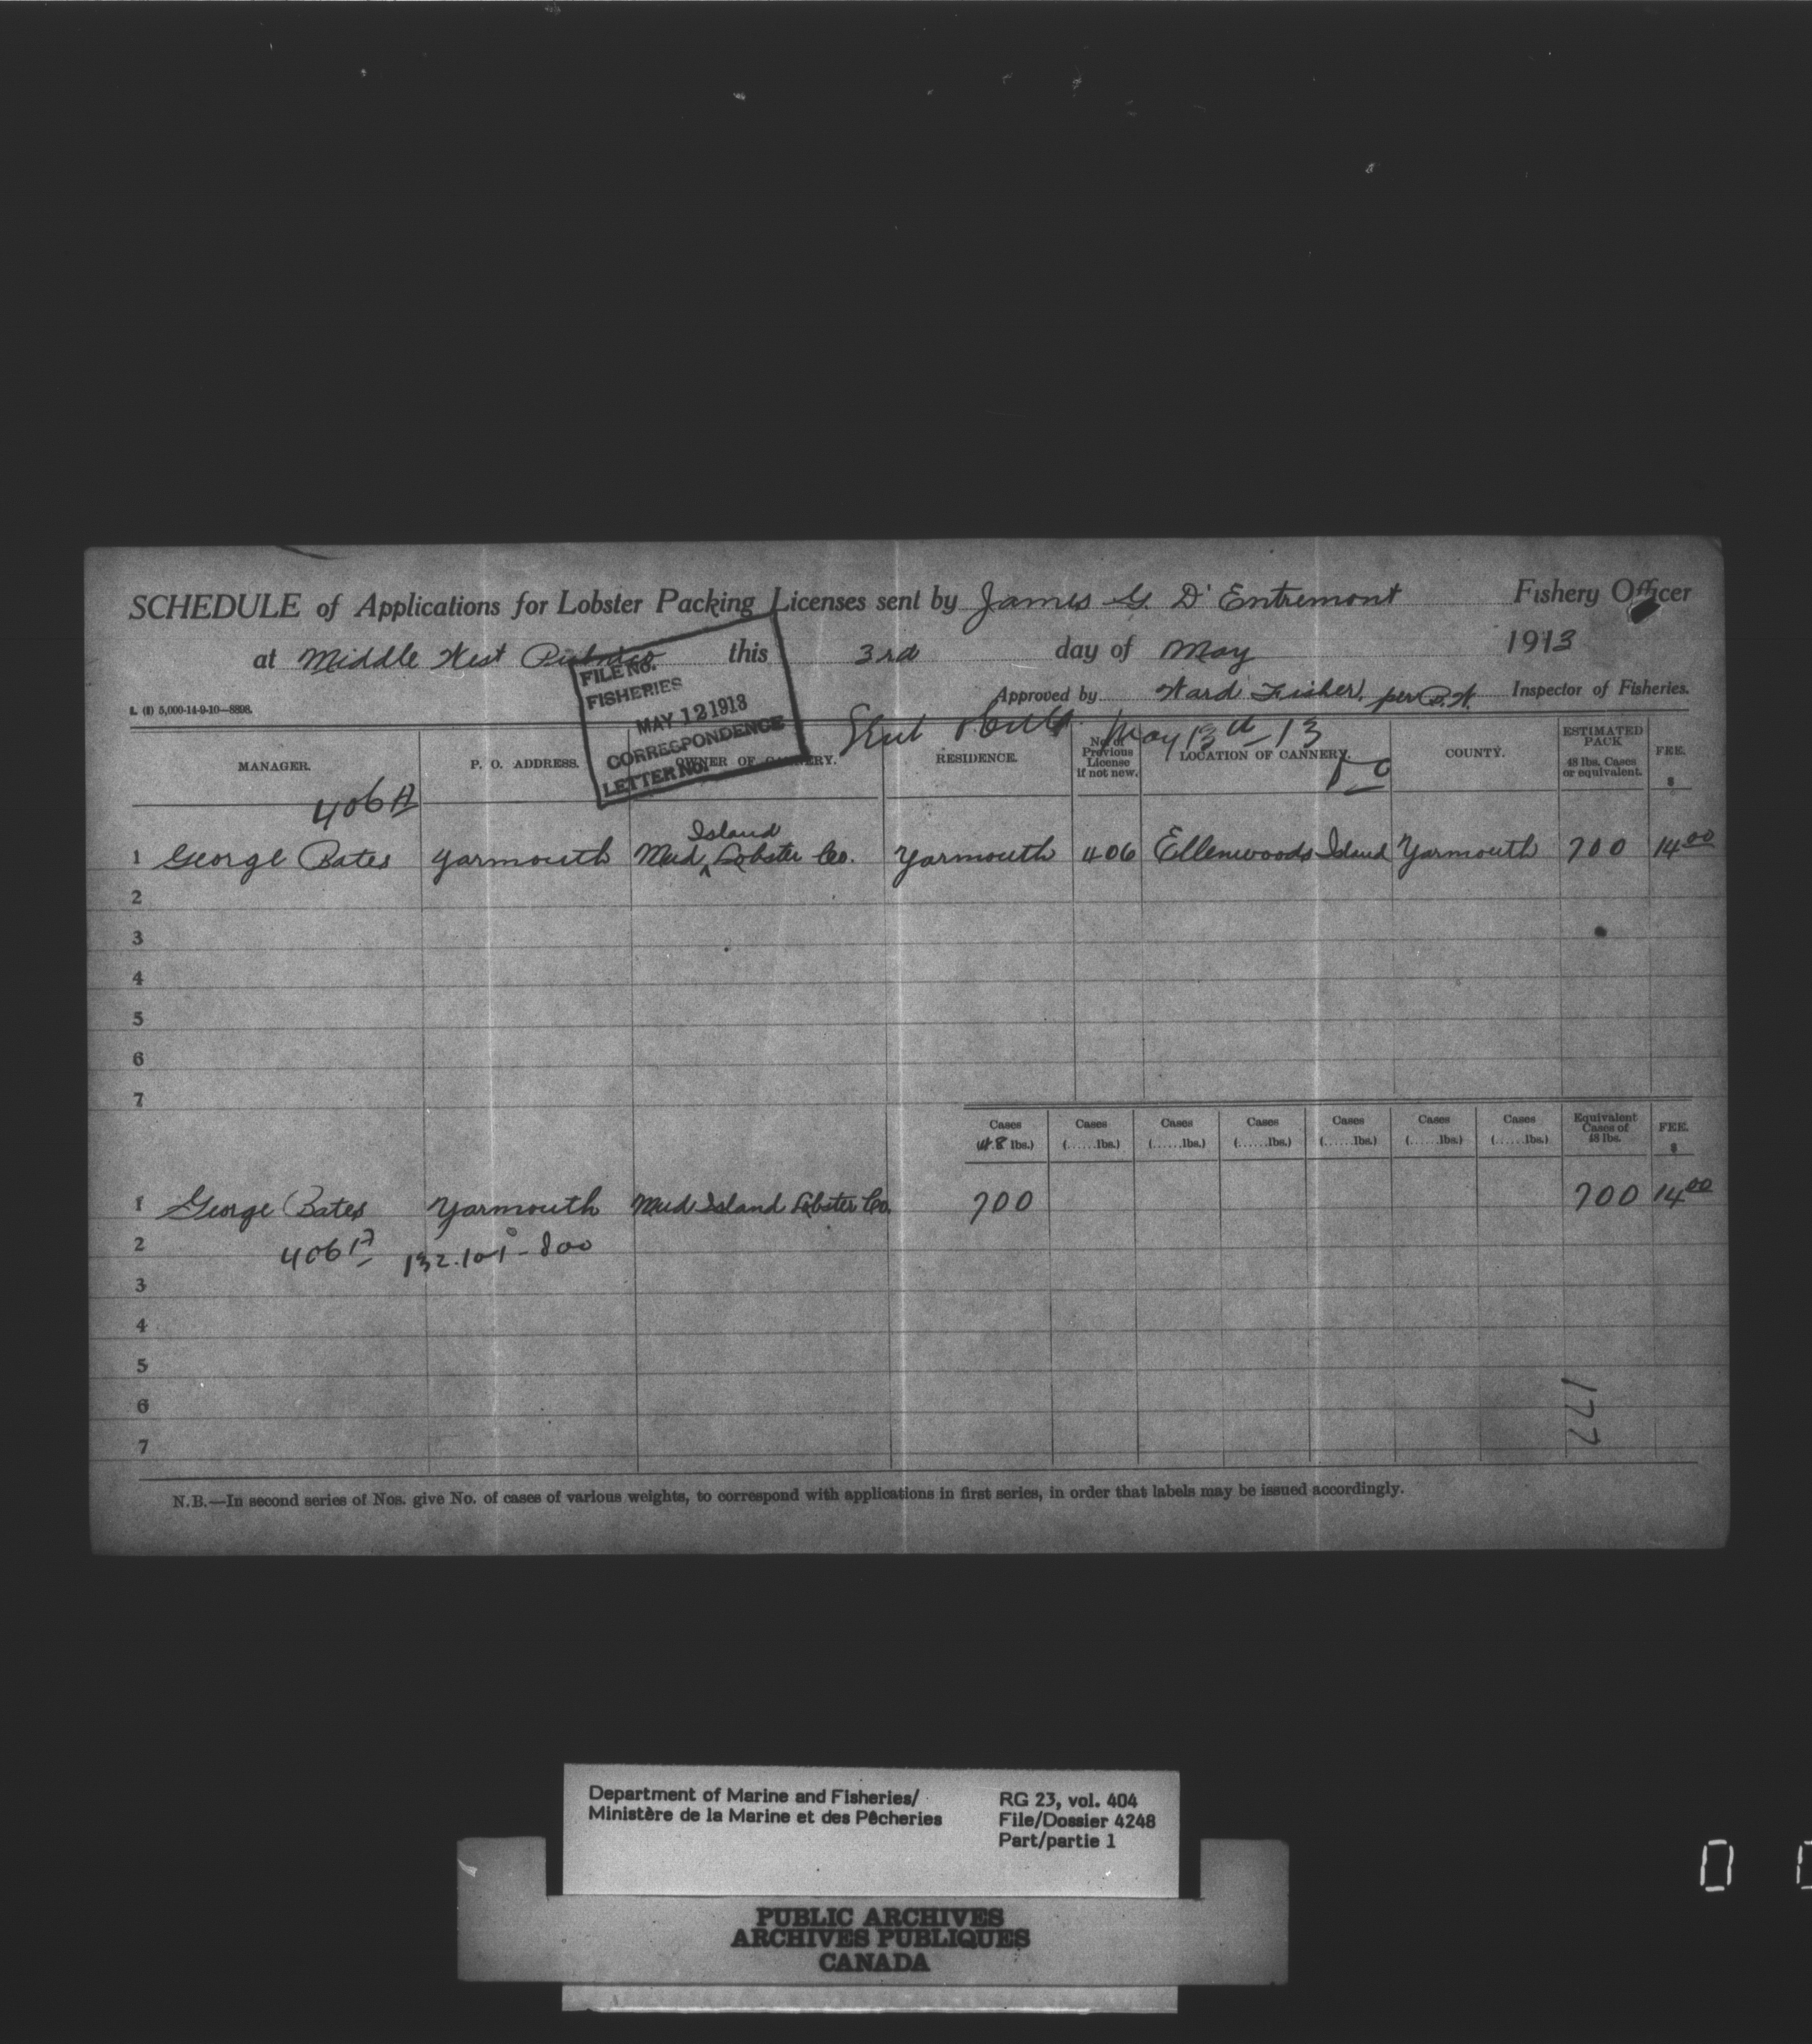 SCHEDULE of Applications for Lobster Packing Licenses sent by James G. D'Entremont Fishery Officer
at Middle West Pubnico this 3rd day of May 1913
Approved by Ward Fisher, per B.W. Inspector of Fisheries.
L (8) 5,000-14-9-10—8898.
FILE No.
FISHERIES
MAY 12 1913
CORRESPONDENCE
LETTER No.
Sent May 13th-13
MANAGER. P. O. ADDRESS. OWNER OF CANNERY. RESIDENCE. No. of Previous License if not new. LOCATION OF CANNERY. COUNTY. ESTIMATED PACK 48 lbs. Cases or equivalent. FEE. $
406 A
Island
1 George Bates Yarmouth Mud ^ Lobster Co. Yarmouth 406 Ellenwoods Island Yarmouth 700 14 00
2
3
4
5
6
7
Cases (48 lbs.) Cases (......lbs.) Cases (......lbs.) Cases (......lbs.) Cases (......lbs.) Cases (......lbs.) Cases (......lbs.) Equivalent Cases of 48 lbs. FEE. $
1 George Bates Yarmouth Mud Island Lobster Co. 700 700 14 00
2 406 A
3
4
5
6
7
177
N.B.—In second series of Nos. give No. of cases of various weights, to correspond with applications in first series, in order that labels may be issued accordingly.
Department of Marine and Fisheries/
Ministère de la Marine et des Pêcheries
RG 23, vol. 404
File/Dossier 4248
Part/partie 1
PUBLIC ARCHIVES
ARCHIVES PUBLIQUES
CANADA